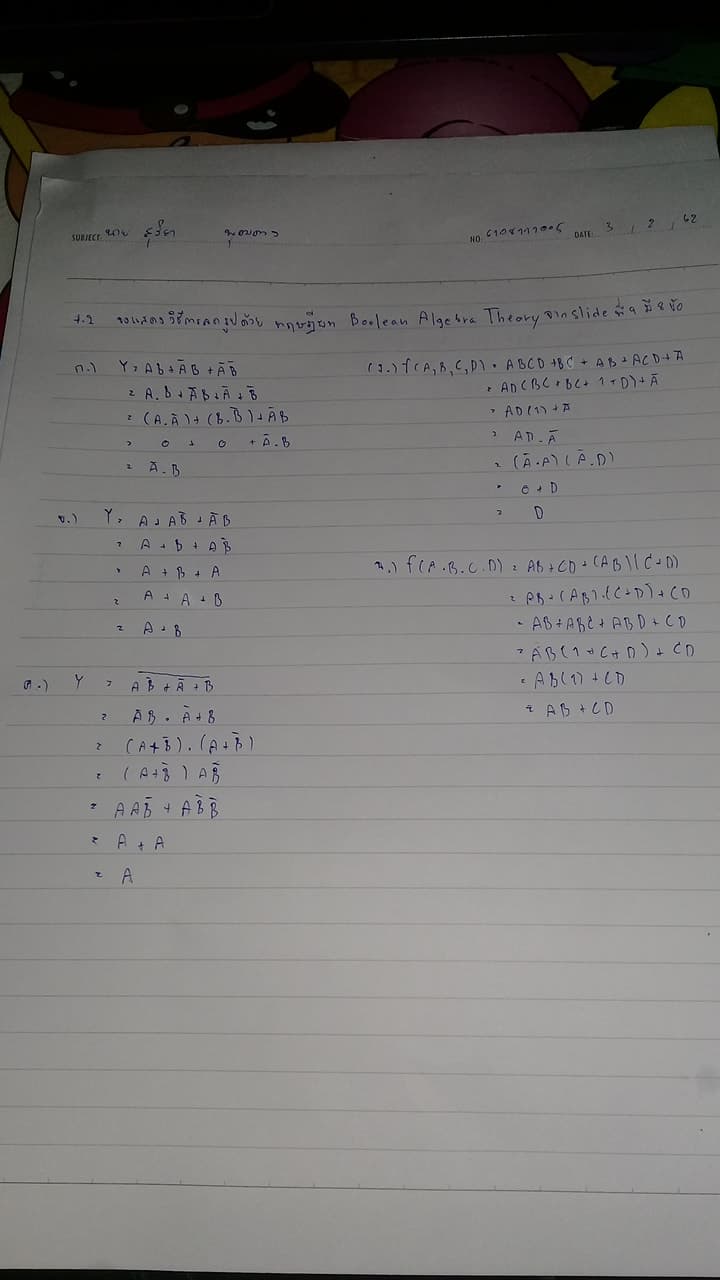 SUBJECT: นาย สุริยา
NO. DATE: 3 / 2 / 62
จงแสดงวิธีการลดรูปด้วย ทฤษฎีบท Boolean Algebra Theory จาก slide ที่ 9 มี 8 ข้อ
ก.) Y = AB + ĀB + ĀB̄
= A.B + ĀB + Ā + B̄
= (A.Ā) + (B.B̄) + ĀB
= 0 + 0 + Ā.B
= Ā.B
ข.) Y = A + AB̄ + ĀB
= A + B + AB̄
= A + B + A
= A + A + B
= A + B
ค.) Y =
= (A+B̄).(A+B̄)
= (A+B̄) AB̄
= AAB̄ + AB̄B̄
= A + A
= A
f(A,B,C,D) = ABCD + BC + AB + ACD + Ā
= AD(BC + BC + 1 + D) + Ā
= AD(1) + Ā
= AD.Ā
= (Ā.A)(Ā.D)
= 0 + D
= D
f(A.B.C.D) = AB + CD + (AB)(C+D)
= AB + (AB).(C+D) + CD
= AB + ABC + ABD + CD
= AB(1 + C + D) + CD
= AB(1) + CD
= AB + CD